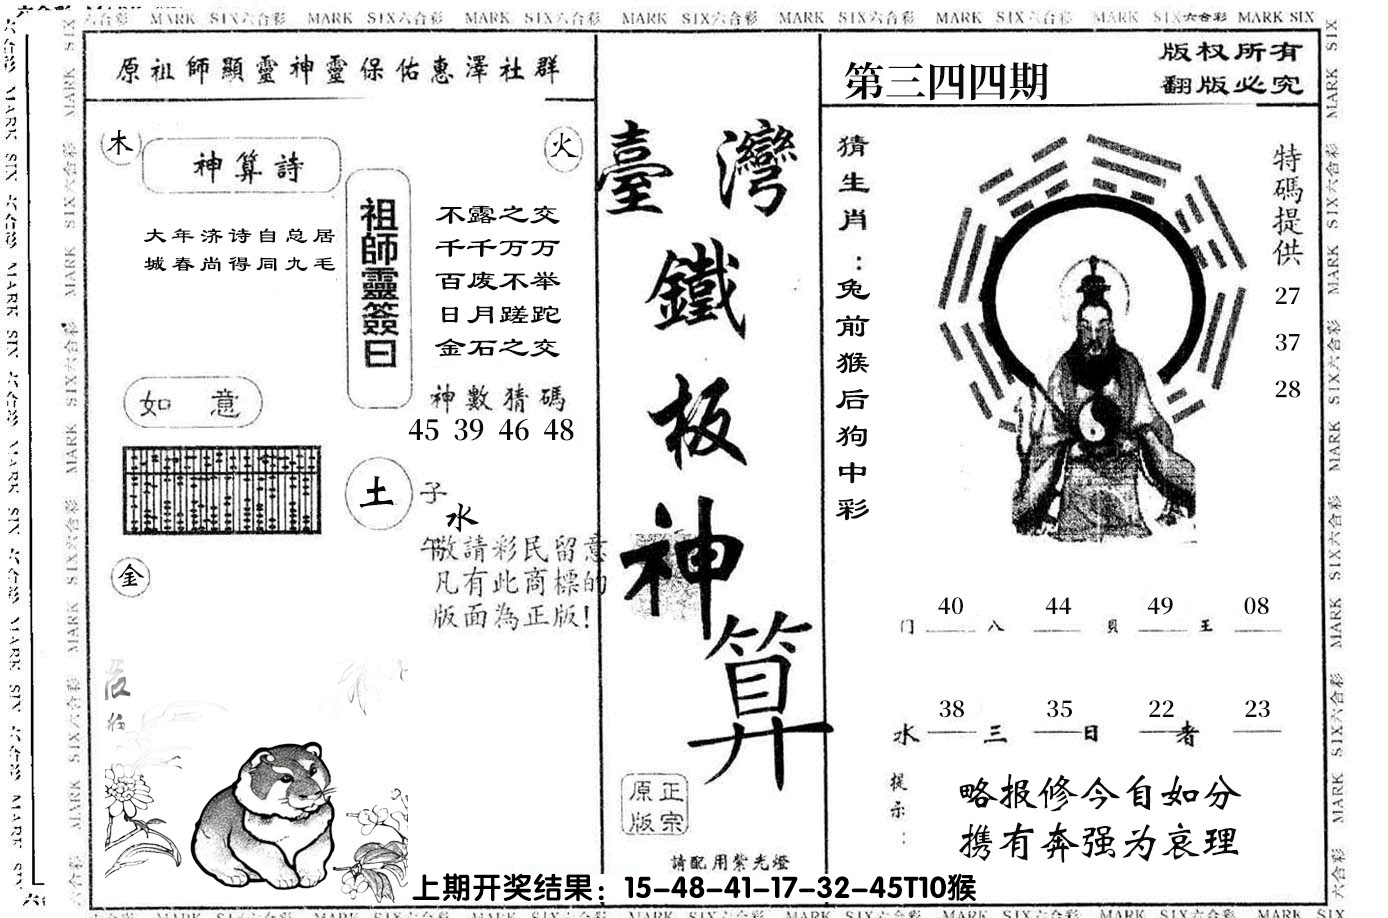 MARK SIX六合彩 MARK SIX六合彩 MARK SIX六合彩 MARK SIX六合彩 MARK SIX六合彩 MARK SIX六合彩 MARK SIX六合彩 MARK SIX六合彩 MARK SIX
原祖師顯靈神靈保佑惠澤社群
木
神算詩
火
大年济诗自总居
城春尚得同九毛
祖師靈簽曰
不露之交
千千万万
百废不举
日月蹉跎
金石之交
神數猜碼
45 39 46 48
如 意
土
子
水
午
敬請彩民留意
凡有此商標的
版面為正版!
金
臺灣
鐵
板
神
算
正宗
原版
請配用紫光燈
第三四四期
版权所有
翻版必究
猜生肖:兔前猴后狗中彩
特碼提供
27
37
28
门 40 八 44 貝 49 王 08
水 38 三 35 日 22 者 23
提示:
略报修今自如分
携有奔强为哀理
上期开奖结果：15-48-41-17-32-45T10猴